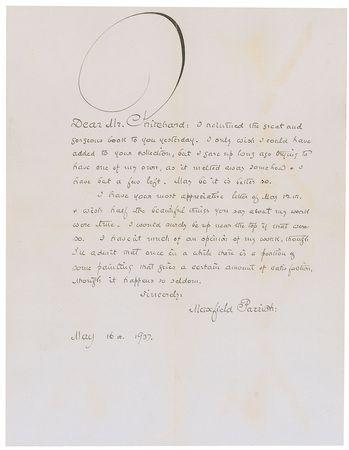 Dear Mr. Chritchard: I returned the great and
gorgeous book to you yesterday. I only wish I could have
added to your collection, but I gave up long ago trying to
have one of my own, as it melted away somehow & I
have but a few left. May be it is better so.
I have your most appreciative letter of May 12th.
& wish half the beautiful things you say about my work
were true. I would surely be up near the top if that were
so. I haven't much of an opinion of my work, though
I'll admit that once in a while there is a portion of
some painting that gives a certain amount of satisfaction,
though it happens so seldom.
Sincerely:
Maxfield Parrish:
May 16th. 1937.